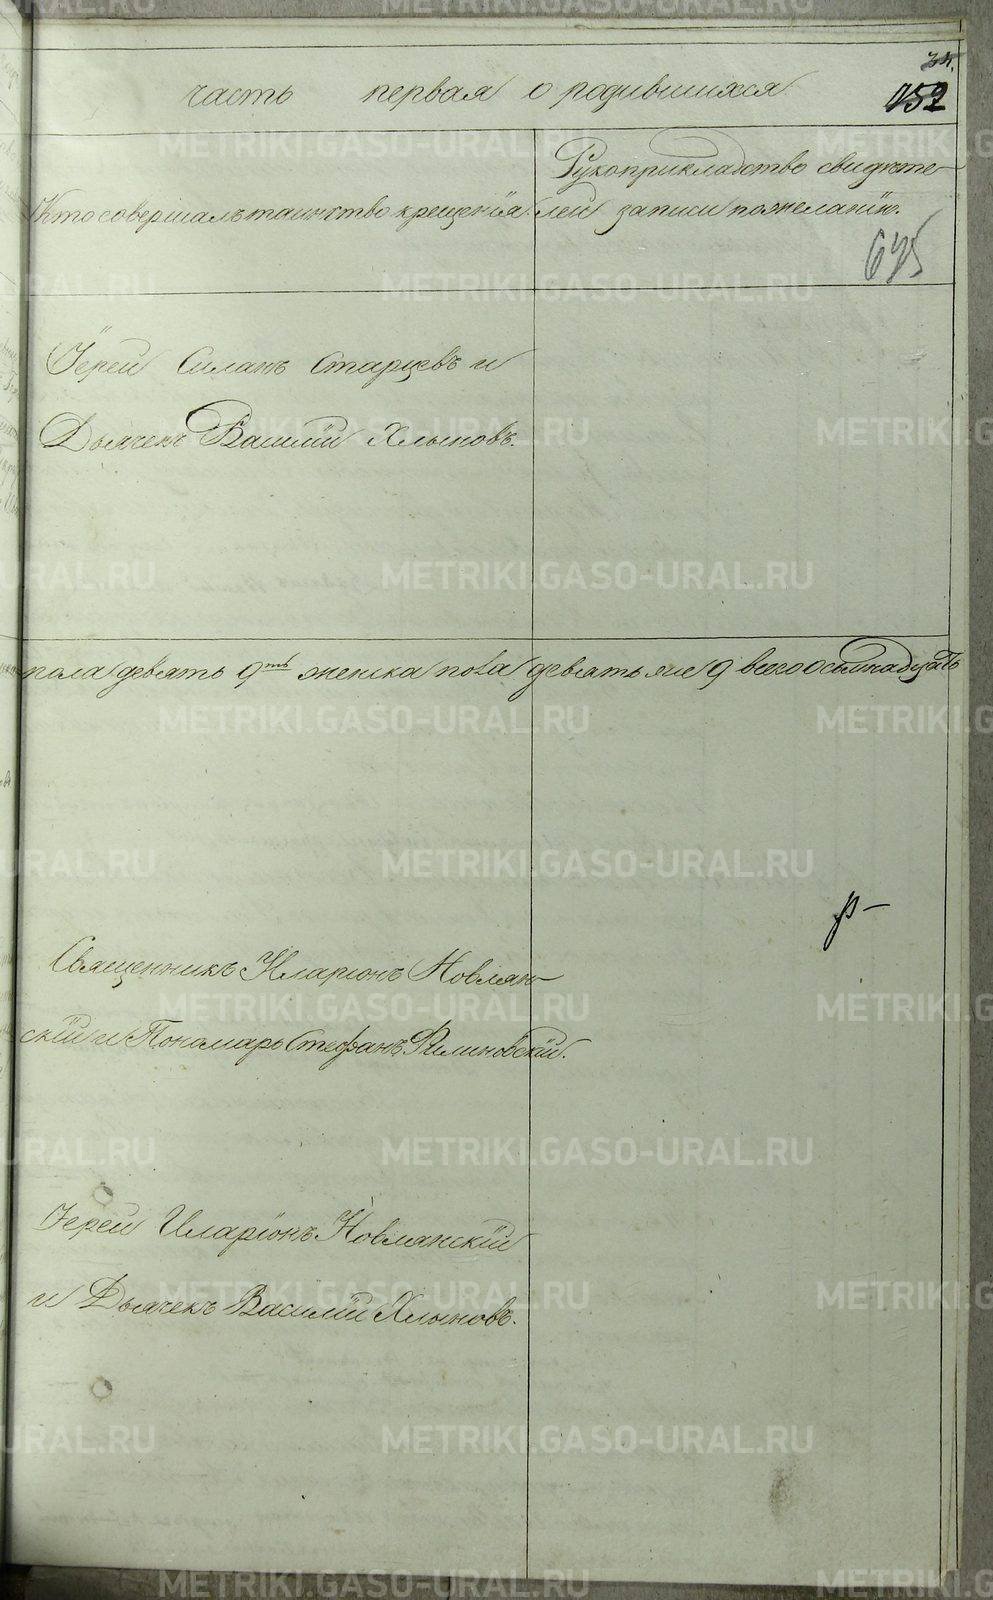 34.
часть первая о родившихся
152
Рукоприкладство свидѣте-
Кто совершалъ таинство крещенія.
лей записи по желанію.
675
Іерей Силанъ Старцевъ и
Дьячекъ Василій Хлыновъ.
пола девять 9ть женска пола девять же 9 всего осьмнадцать
р-
Священникъ Иларіонъ Новлян-
скій и Пономарь Стефанъ Филиновскій.
Іерей Иларіонъ Новлянскій
и Дьячекъ Василій Хлыновъ.
METRIKI.GASO-URAL.RU